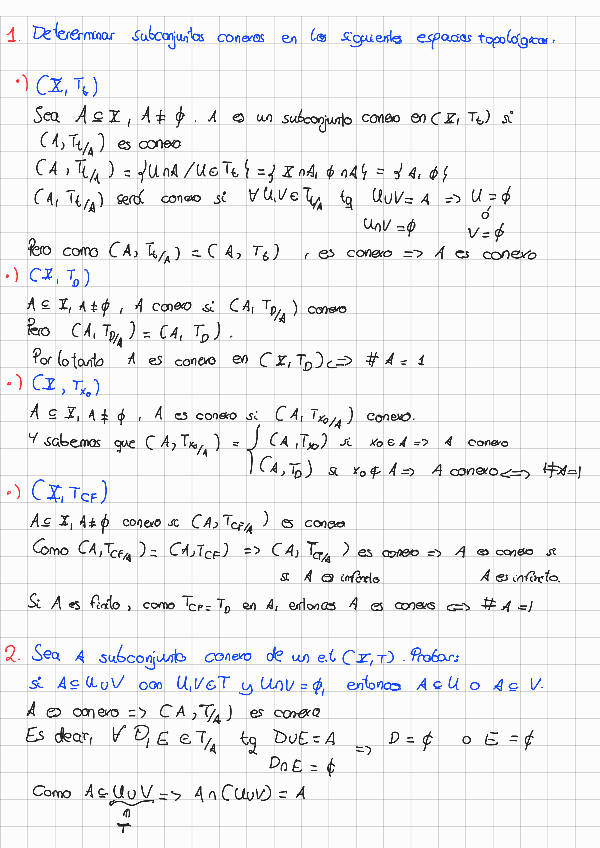 1. Detererminar subconjuntos conexos en los siguientes espacios topológicos.
•) (X, T_t)
Sea A ⊆ X, A ≠ ∅. A es un subconjunto conexo en (X, T_t) si
(A, T_t/A) es conexo
(A, T_t/A) = {U∩A / U∈T_t} = {X∩A, ∅∩A} = {A, ∅}
(A, T_t/A) será conexo si ∀U,V∈T_t/A tq U∪V = A => U = ∅
U∩V = ∅ ó V = ∅
Pero como (A, T_t/A) = (A, T_t), es conexo => A es conexo
•) (X, T_D)
A ⊆ X, A ≠ ∅, A conexo si (A, T_D/A) conexo
Pero (A, T_D/A) = (A, T_D).
Por lo tanto A es conexo en (X, T_D) <=> #A = 1
•) (X, T_x0)
A ⊆ X, A ≠ ∅, A es conexo si (A, T_x0/A) conexo.
Y sabemos que (A, T_x0/A) = { (A, T_x0) si x0∈A => A conexo
(A, T_D) si x0∉A => A conexo <=> #A=1
•) (X, T_CF)
A ⊆ X, A ≠ ∅ conexo si (A, T_CF/A) es conexo
Como (A, T_CF/A) = (A, T_CF) => (A, T_CF/A) es conexo => A es conexo si
si A es infinito A es infinito.
Si A es finito, como T_CF = T_D en A, entonces A es conexo <=> #A=1
2. Sea A subconjunto conexo de un e.t (X, T). Probar:
si A ⊆ U∪V con U,V∈T y U∩V = ∅, entonces A ⊆ U o A ⊆ V.
A es conexo => (A, T/A) es conexo
Es decir, ∀ D, E ∈ T/A tq D∪E = A => D = ∅ o E = ∅
D∩E = ∅
Como A ⊆ U∪V => A∩(U∪V) = A
∩
T